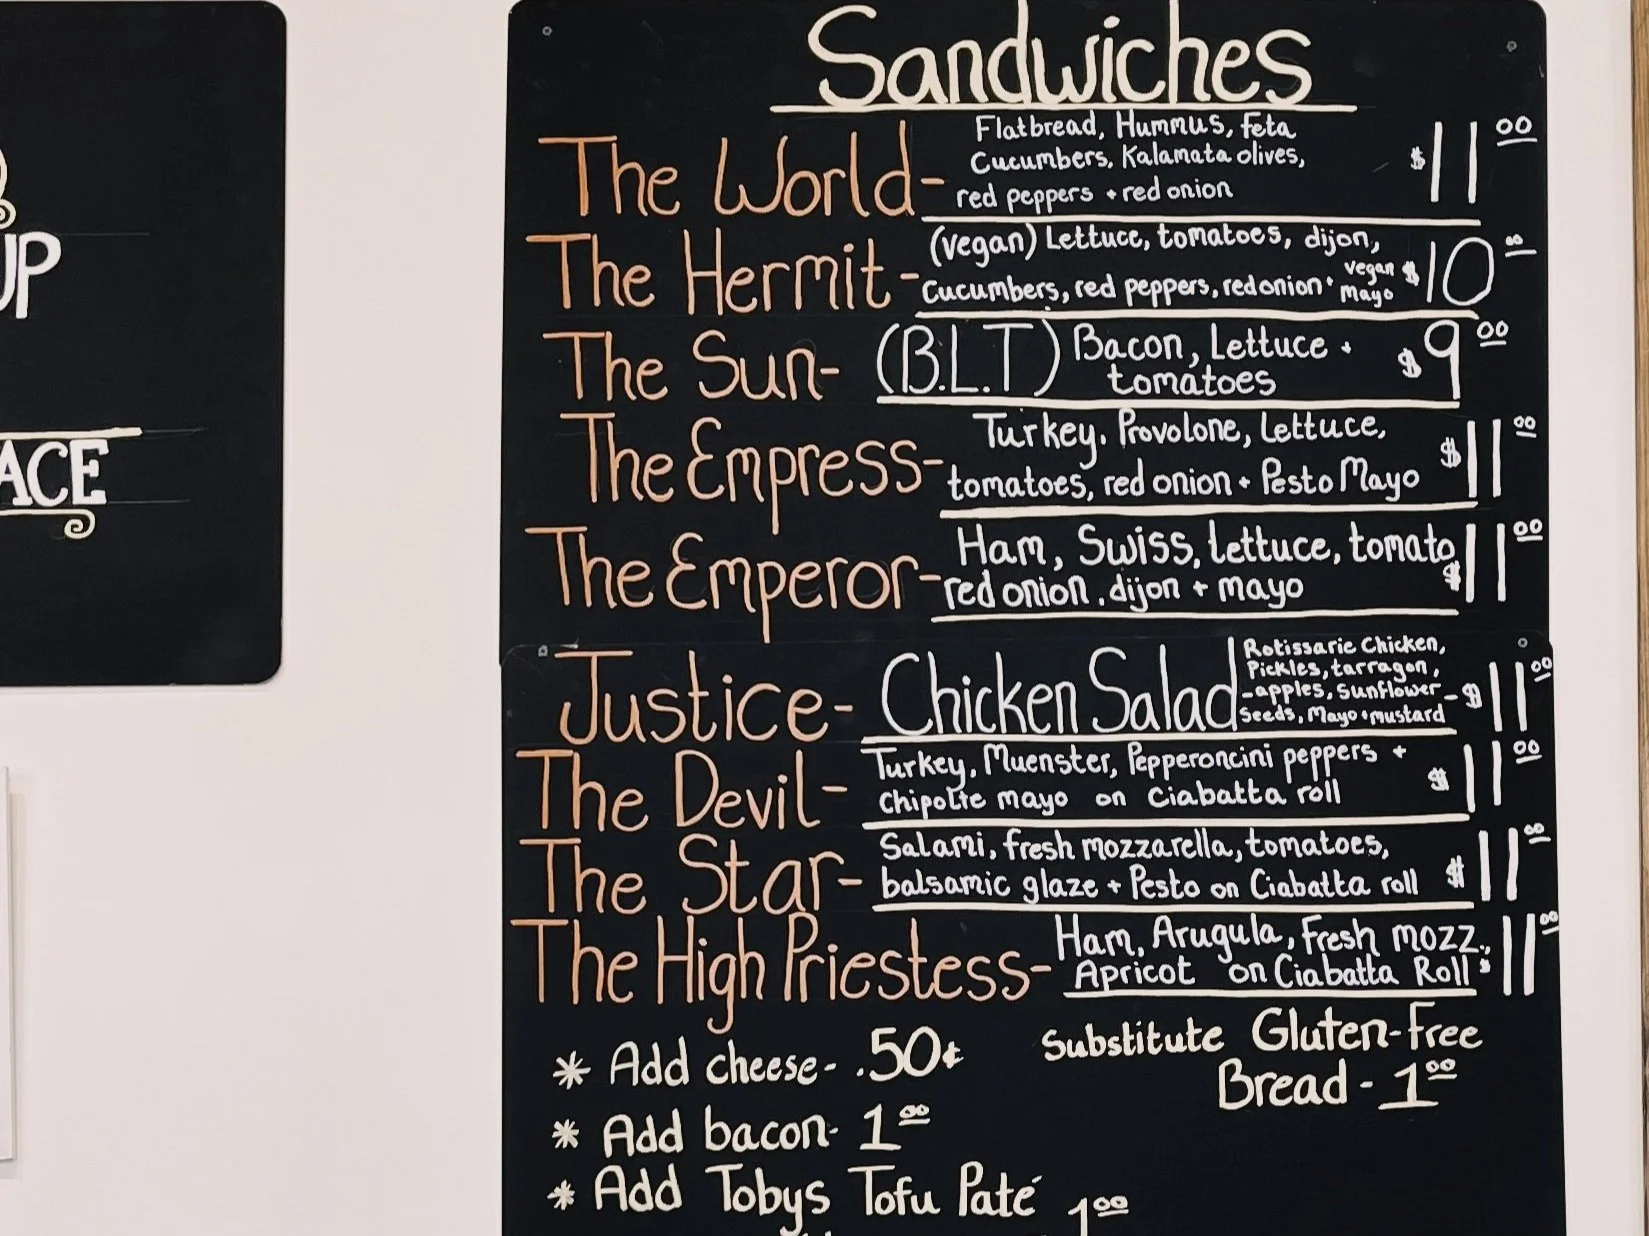 UP
ACE
Sandwiches
The World- Flatbread, Hummus, feta
Cucumbers, Kalamata olives,
red peppers + red onion $11 00
The Hermit- (vegan) Lettuce, tomatoes, dijon,
Cucumbers, red peppers, red onion + vegan mayo $10 00
The Sun- (B.L.T) Bacon, Lettuce +
tomatoes $9 00
The Empress- Turkey. Provolone, Lettuce,
tomatoes, red onion + Pesto Mayo $11 00
The Emperor- Ham, Swiss, lettuce, tomato,
red onion, dijon + mayo $11 00
Justice- Chicken Salad Rotissarie Chicken,
Pickles, tarragon,
-apples, Sunflower-
Seeds, Mayo + mustard $11 00
The Devil- Turkey, Muenster, Pepperoncini peppers +
Chipotle mayo on Ciabatta roll $11 00
The Star- Salami, fresh mozzarella, tomatoes,
balsamic glaze + Pesto on Ciabatta roll $11 00
The High Priestess- Ham, Arugula, Fresh mozz.,
Apricot on Ciabatta Roll $11 00
* Add cheese- .50¢
Substitute Gluten-free
Bread - 1 00
* Add bacon- 1 00
* Add Tobys Tofu Paté 1 00